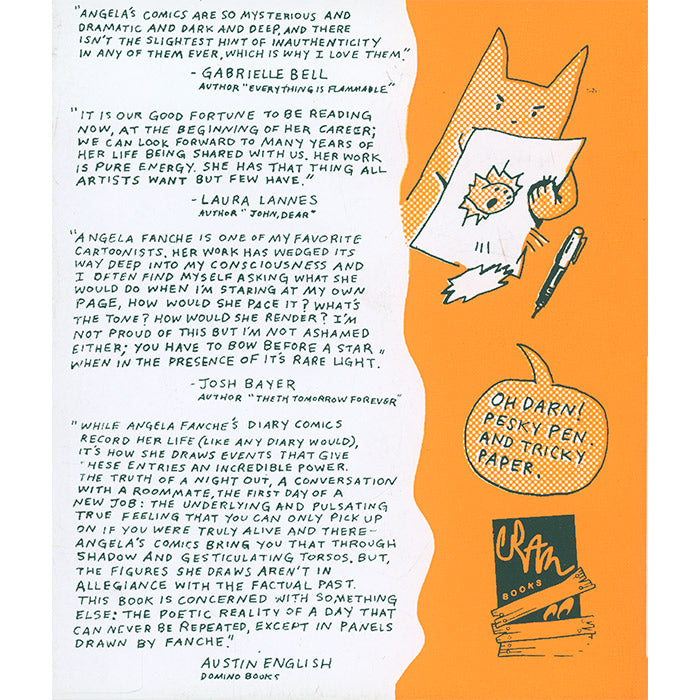 "ANGELA'S COMICS ARE SO MYSTERIOUS AND
DRAMATIC AND DARK AND DEEP, AND THERE
ISN'T THE SLIGHTEST HINT OF INAUTHENTICITY
IN ANY OF THEM EVER, WHICH IS WHY I LOVE THEM."
- GABRIELLE BELL
AUTHOR "EVERYTHING IS FLAMMABLE"
"IT IS OUR GOOD FORTUNE TO BE READING
NOW, AT THE BEGINNING OF HER CAREER;
WE CAN LOOK FORWARD TO MANY YEARS OF
HER LIFE BEING SHARED WITH US. HER WORK
IS PURE ENERGY. SHE HAS THAT THING ALL
ARTISTS WANT BUT FEW HAVE."
- LAURA LANNES
AUTHOR "JOHN, DEAR"
"ANGELA FANCHE IS ONE OF MY FAVORITE
CARTOONISTS. HER WORK HAS WEDGED ITS
WAY DEEP INTO MY CONSCIOUSNESS AND
I OFTEN FIND MYSELF ASKING WHAT SHE
WOULD DO WHEN I'M STARING AT MY OWN
PAGE, HOW WOULD SHE PACE IT? WHAT'S
THE TONE? HOW WOULD SHE RENDER? I'M
NOT PROUD OF THIS BUT I'M NOT ASHAMED
EITHER; YOU HAVE TO BOW BEFORE A STAR
WHEN IN THE PRESENCE OF IT'S RARE LIGHT."
- JOSH BAYER
AUTHOR "THETH TOMORROW FOREVER"
"WHILE ANGELA FANCHE'S DIARY COMICS
RECORD HER LIFE (LIKE ANY DIARY WOULD),
IT'S HOW SHE DRAWS EVENTS THAT GIVE
HESE ENTRIES AN INCREDIBLE POWER.
THE TRUTH OF A NIGHT OUT, A CONVERSATION
WITH A ROOMMATE, THE FIRST DAY OF A
NEW JOB: THE UNDERLYING AND PULSATING
TRUE FEELING THAT YOU CAN ONLY PICK UP
ON IF YOU WERE TRULY ALIVE AND THERE-
ANGELA'S COMICS BRING YOU THAT THROUGH
SHADOW AND GESTICULATING TORSOS. BUT,
THE FIGURES SHE DRAWS AREN'T IN
ALLEGIANCE WITH THE FACTUAL PAST.
THIS BOOK IS CONCERNED WITH SOMETHING
ELSE: THE POETIC REALITY OF A DAY THAT
CAN NEVER BE REPEATED, EXCEPT IN PANELS
DRAWN BY FANCHE."
AUSTIN ENGLISH
DOMINO BOOKS
OH DARN!
PESKY PEN.
AND TRICKY
PAPER.
CRAM
BOOKS